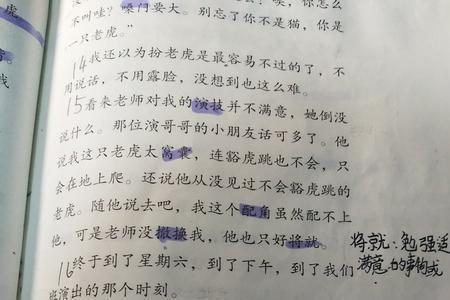 虎
不叫哇？嗓门要大。别忘了你不是猫，你是
一只老虎。”
14我还以为扮老虎是最容易不过的了，不
用说话，不用露脸，没想到也这么难。
15看来老师对我的演技并不满意，她倒没
说什么。那位演哥哥的小朋友话可多了。他
说我这只老虎太窝囊，连豁虎跳也不会，只
会在地上爬。还说他从没见过不会豁虎跳的
老虎。随他说去吧，我这个配角虽然配不上
他，可是老师没撤换我，他也只好将就。
将就：勉强适
满意的事物或
16终于到了星期六，到了下午，到了我们
班演出的那个时刻。